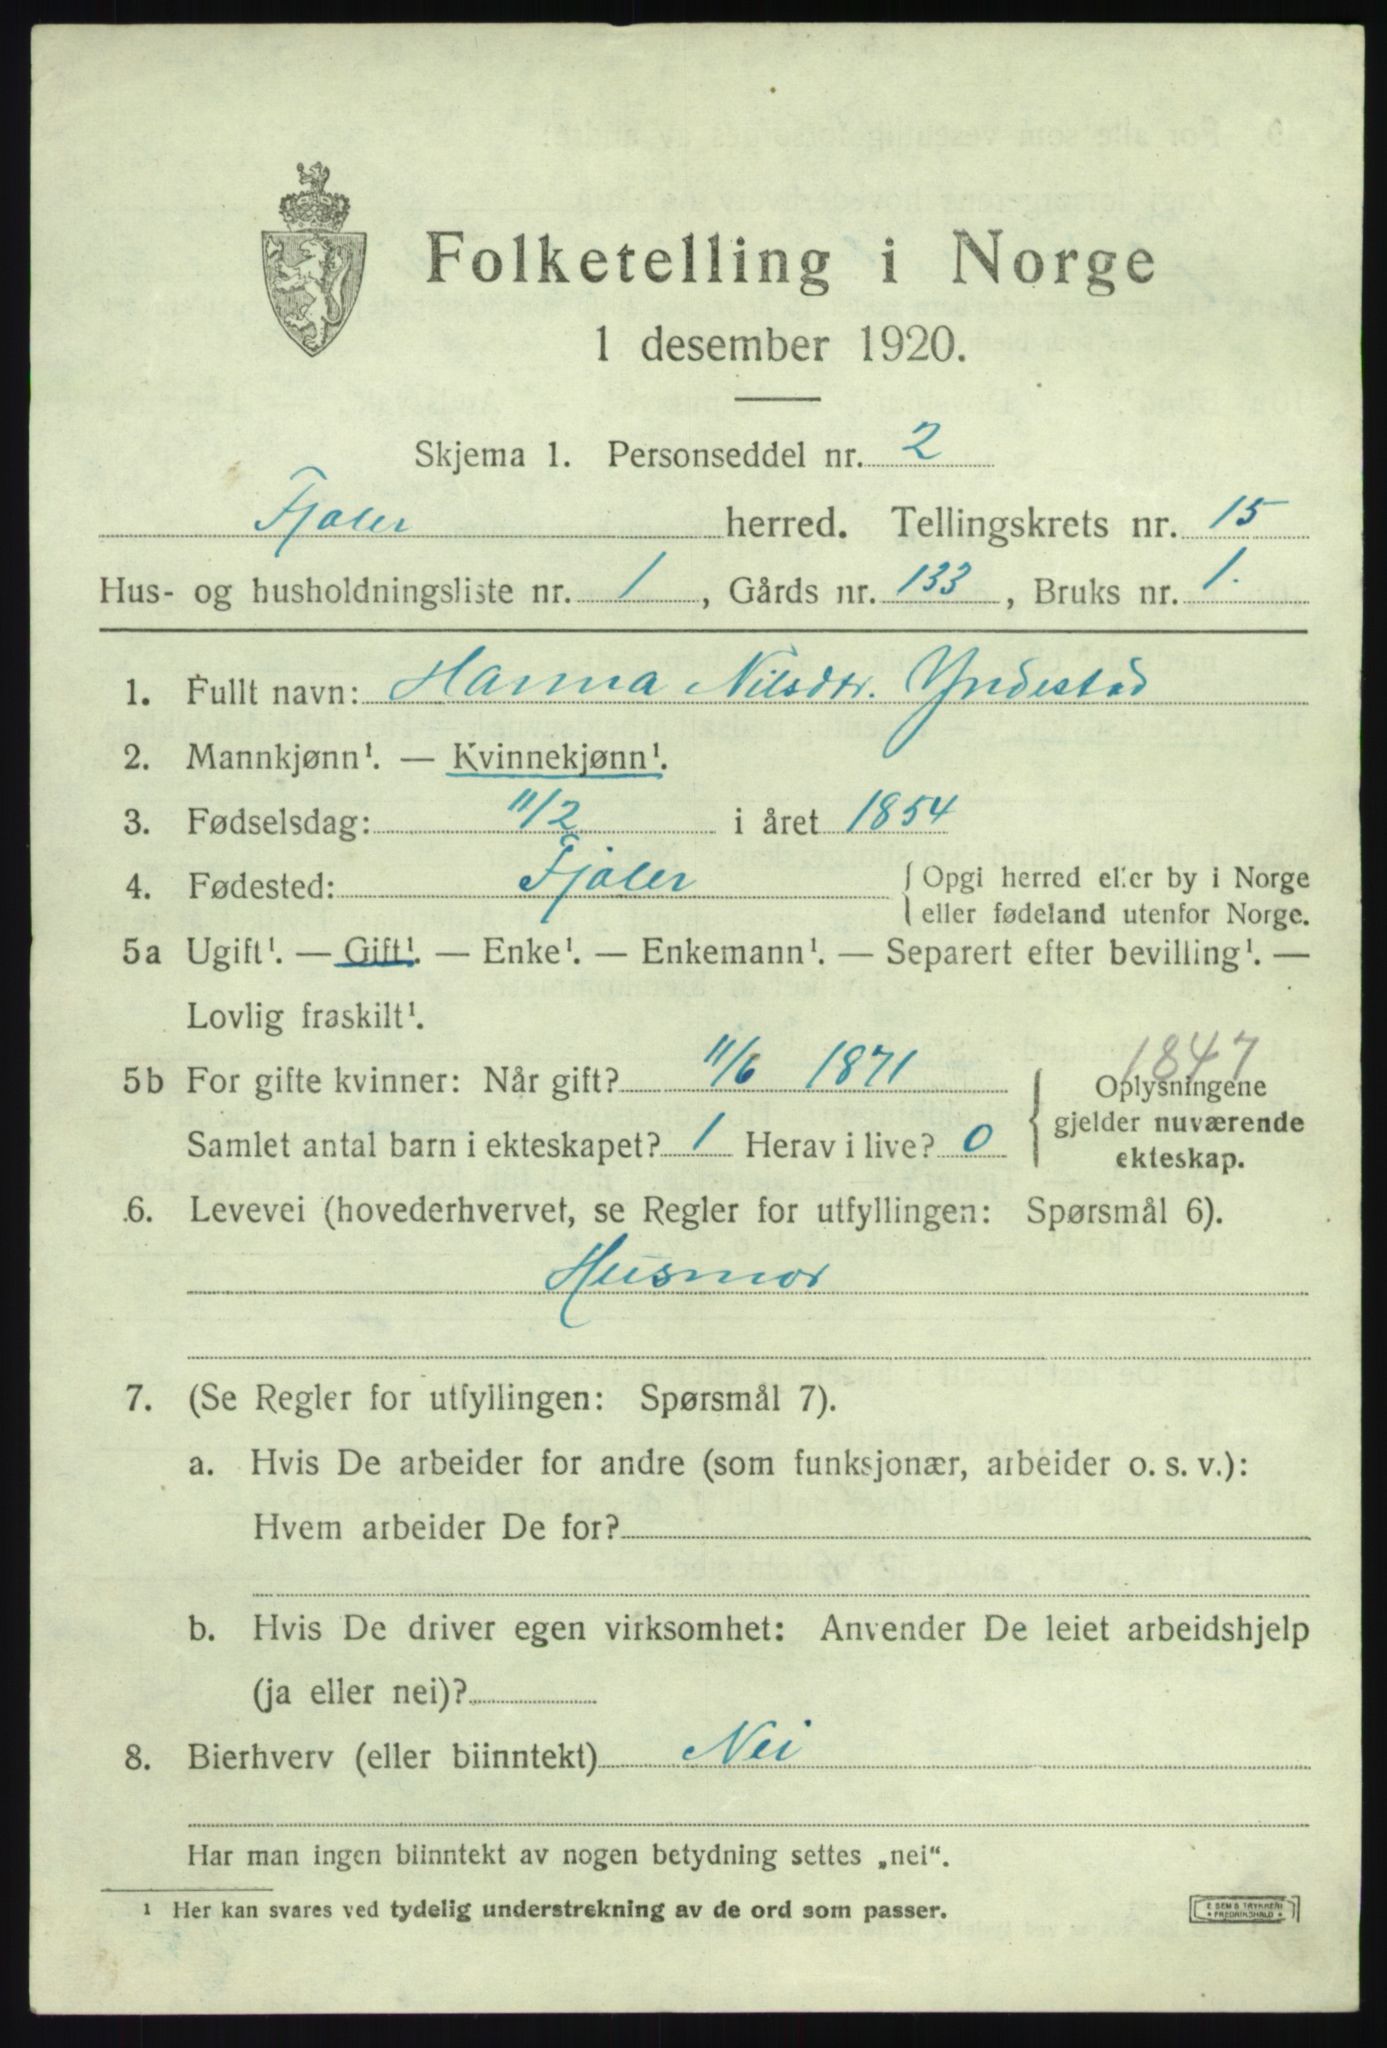 Folketelling i Norge
1 desember 1920.
Skjema 1. Personseddel nr. 2
Fjaler herred. Tellingskrets nr. 15
Hus- og husholdningsliste nr. 1, Gårds nr. 133, Bruks nr. 1.
1. Fullt navn: Hanna Nilsdtr. Yndestad
2. Mannkjønn¹. — Kvinnekjønn¹.
3. Fødselsdag: 11/2 i året 1854
4. Fødested: Fjaler { Opgi herred eller by i Norge
eller fødeland utenfor Norge.
5a Ugift¹. — Gift¹. — Enke¹. — Enkemann¹. — Separert efter bevilling¹. —
Lovlig fraskilt¹.
1847
5b For gifte kvinner: Når gift? 11/6 1871 { Oplysningene
gjelder nuværende
Samlet antal barn i ekteskapet? 1 Herav i live? 0
ekteskap.
6. Levevei (hovederhvervet, se Regler for utfyllingen: Spørsmål 6).
Husmor
7. (Se Regler for utfyllingen: Spørsmål 7).
a. Hvis De arbeider for andre (som funksjonær, arbeider o. s. v.):
Hvem arbeider De for?
b. Hvis De driver egen virksomhet: Anvender De leiet arbeidshjelp
(ja eller nei)?
8. Bierhverv (eller biinntekt) Nei
Har man ingen biinntekt av nogen betydning settes „nei".
¹ Her kan svares ved tydelig understrekning av de ord som passer.
E SEMS TRYKKERI
FREDRIKSHALD